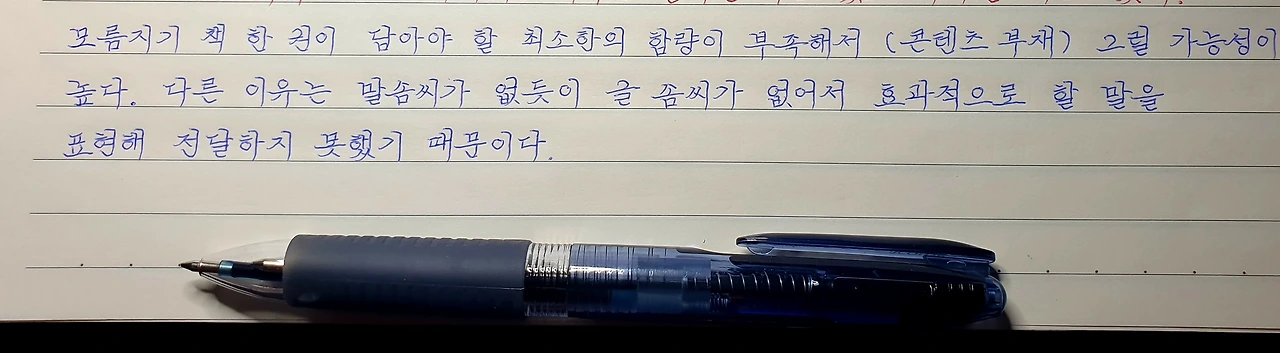 모름지기 책 한 권이 담아야 할 최소한의 함량이 부족해서 (콘텐츠 부재) 그럴 가능성이
높다. 다른 이유는 말솜씨가 없듯이 글 솜씨가 없어서 효과적으로 할 말을
표현해 전달하지 못했기 때문이다.